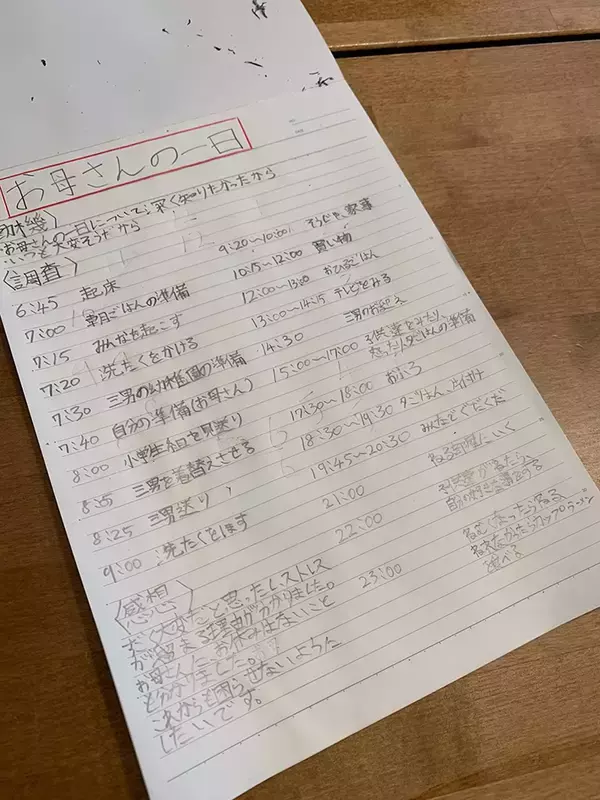 お母さんの一日
動機〉
お母さんの一日について深く知りたかったから
いつも大変そうだから
〈調査〉
6:45 起床
7:00 朝ごはんの準備
7:15 みんなを起こす
7:20 洗たくをかける
7:30 三男の幼稚園の準備
7:40 自分の準備(お母さん)
8:00 小学生組を見送り
8:15 三男を着替えさせる
8:25 三男送り
9:00 洗たくをほす
9:20〜10:00 そうじ、家事
10:15〜12:00 買い物
12:00〜13:00 おひるごはん
13:00〜14:15 テレビをみる
14:30 三男のお迎え
15:00〜17:00 子供達をみたり、
怒ったり夕ごはんの準備
17:30〜18:00 おふろ
18:30〜19:30 夕ごはん、と片付け
19:45〜20:30 みんなでぐだぐだ
21:00 ねる部屋にいく
22:00 子供達がねたら
自分の好きな事をする
23:00 ねむくなったら寝る
ねれなかったらカップラーメン
食べる
〈感想〉
大変だと思ったしストレス
が留まる理由が分かりました。
お母さんにお休みはないこと
と分かりました。
これからも困らせないように
したいです。